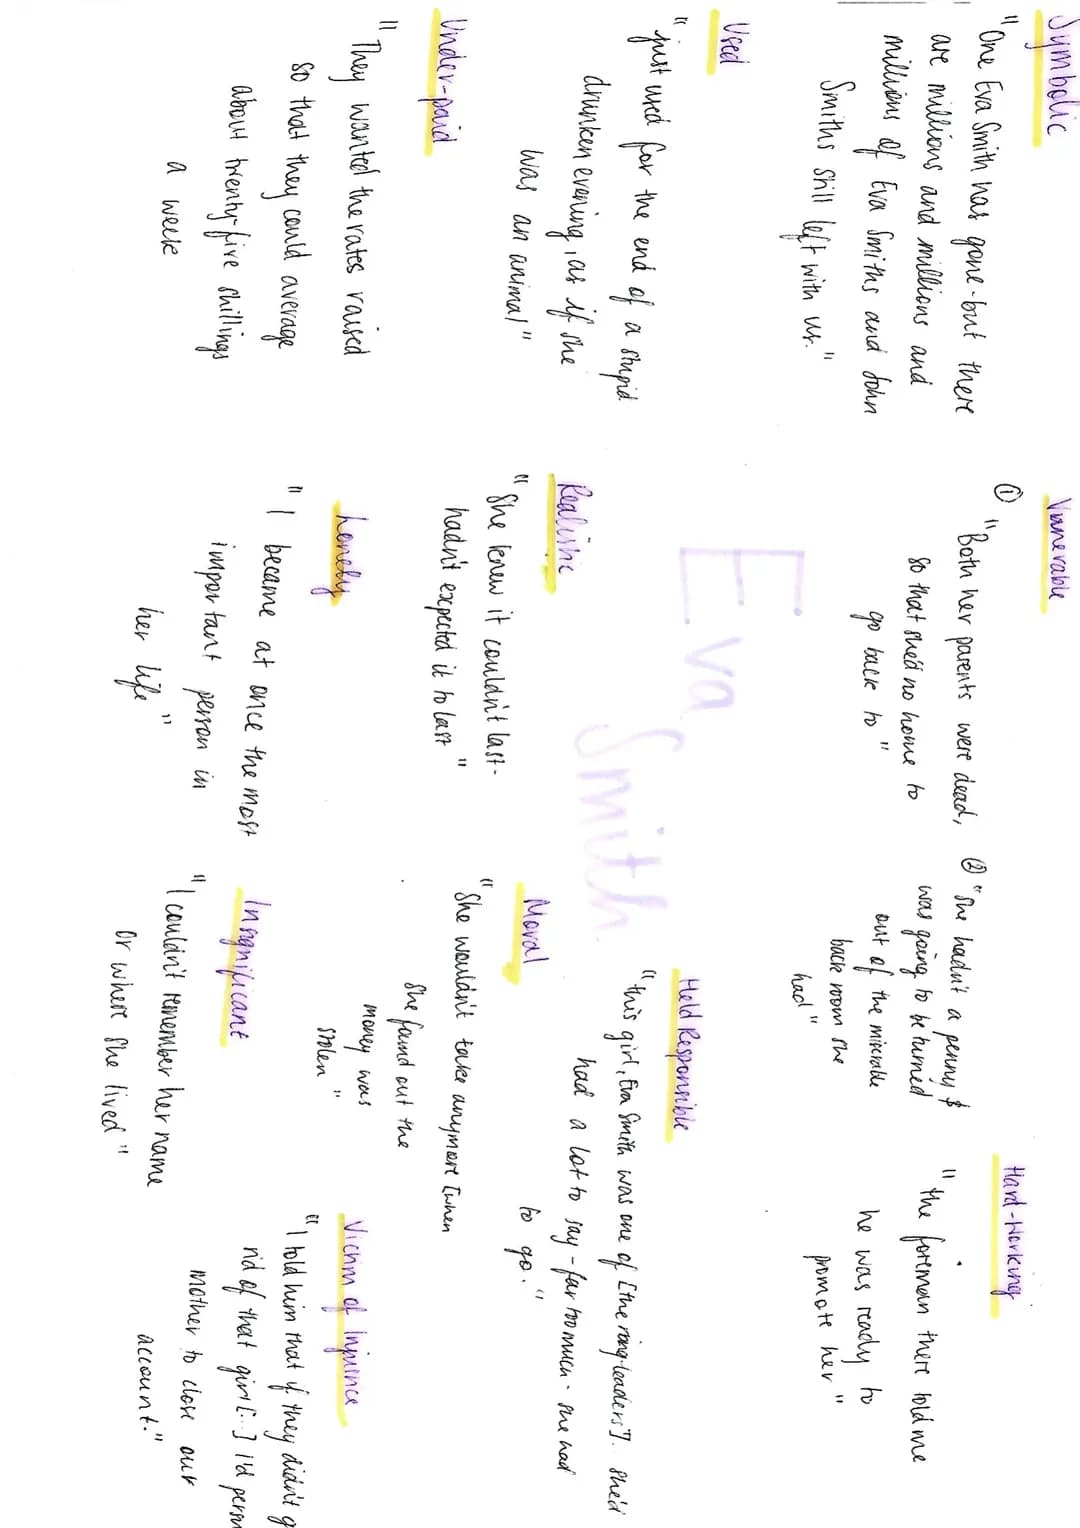 Symbolic
"One Eva Smith has gone - but there
are millions and millions and
millions of Eva Smiths and John
Smiths still left with us."
Used
"just used for the end of a stupid
drunken evening, as if she
was an animal"
Under-paid
"They wanted the rates raised
so that they could average
about twenty-five shillings
a week
Vunerable
① "Both her parents were dead,
so that she'd no home to
go back to"
② "She hadn't a penny &
was going to be turned
out of the miserable
back room she
had"
Hard-Working
"the foreman there told me
he was ready to
promote her"
Eva Smith
Held Responsible
"this girl, Eva Smith was one of [the ring-leaders]. She'd
had a lot to say - far too much - she had
to go."
Realistic
"She knew it couldn't last -
hadn't expected it to last"
Moral
"She wouldn't take anymore [when
she found out the
money was
stolen"
Lonely
"I became at once the most
important person in
her life"
Insignificant
"I couldn't remember her name
or where she lived"
Victim of Injusince
"I told him that if they didn't g
rid of that girl [...] I'd persu
mother to close our
account."